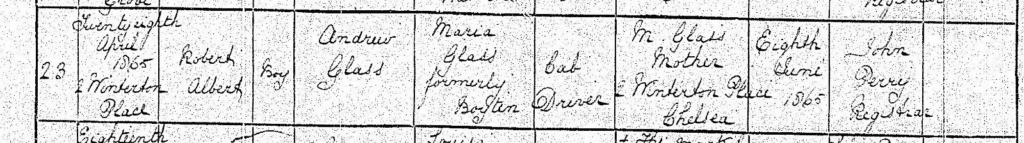 23
Twenty eighth
April
1865
2 Winterton
Place
Robert
Albert
Boy
Andrew
Glass
Maria
Glass
formerly
Cab
Driver
M. Glass
Mother
2 Winterton Place
Chelsea
Eighth
June
1865
John
Perry
Registrar
Eighteenth
Louisa